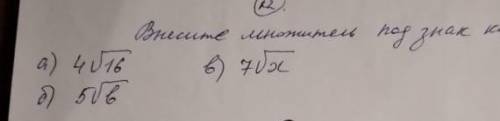 Внесите множитель под знак к
а) 4√16 в) 7√x
б) 5√b